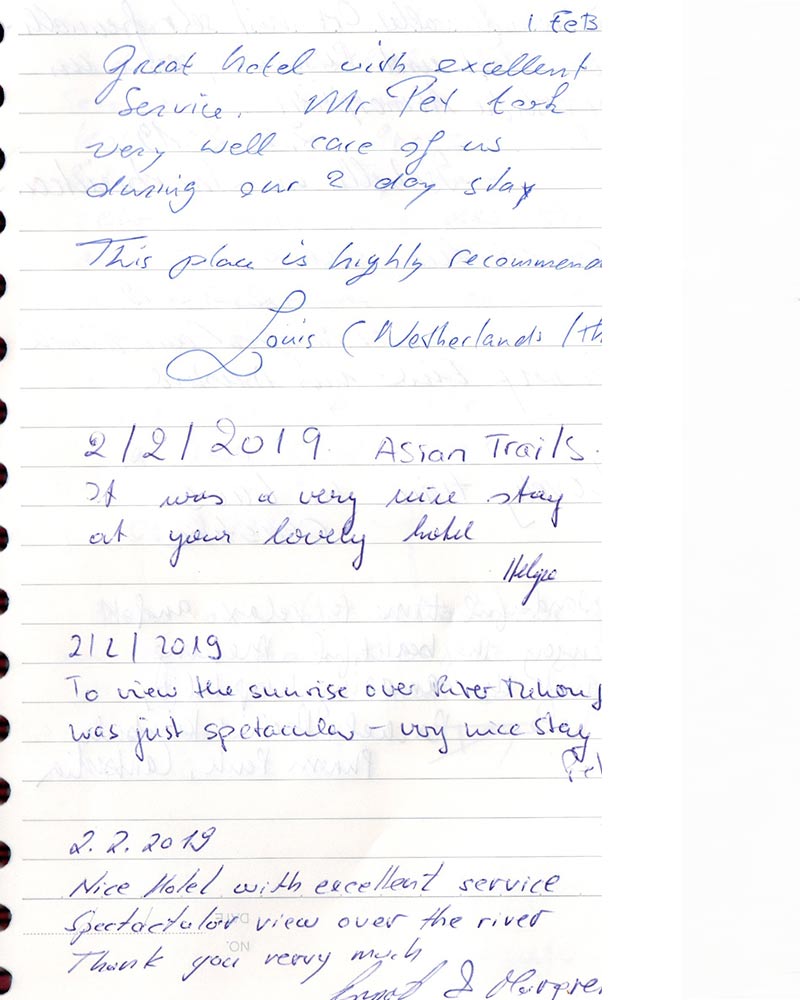 1 FEB
Great hotel with excellent
Service. Mr Pet took
very well care of us
during our 2 day stay
This place is highly recommend
Louis (Netherlands / th
2/2/2019 Asian Trails.
It was a very nice stay
at your lovely hotel
Helga
2/2/2019
To view the sunrise over River Mekong
was just spetacular - very nice stay
Pet
2.2.2019
Nice Hotel with excellent service
Spectactular view over the river
DATE
NO.
Thank you verry much
& Margre